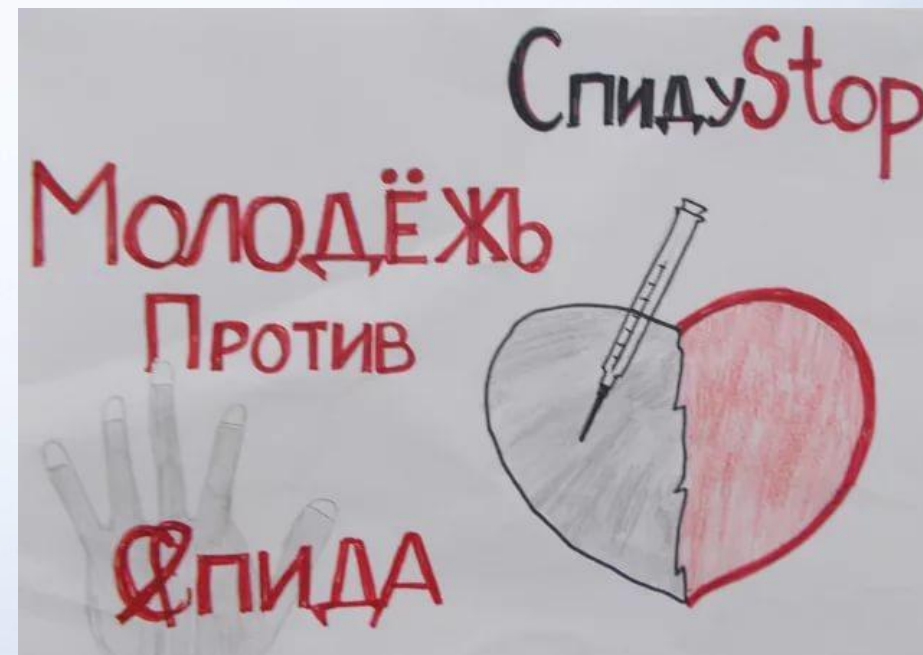 СпидуStop
МОЛОДЁЖЬ
ПРОТИВ
СПИДА